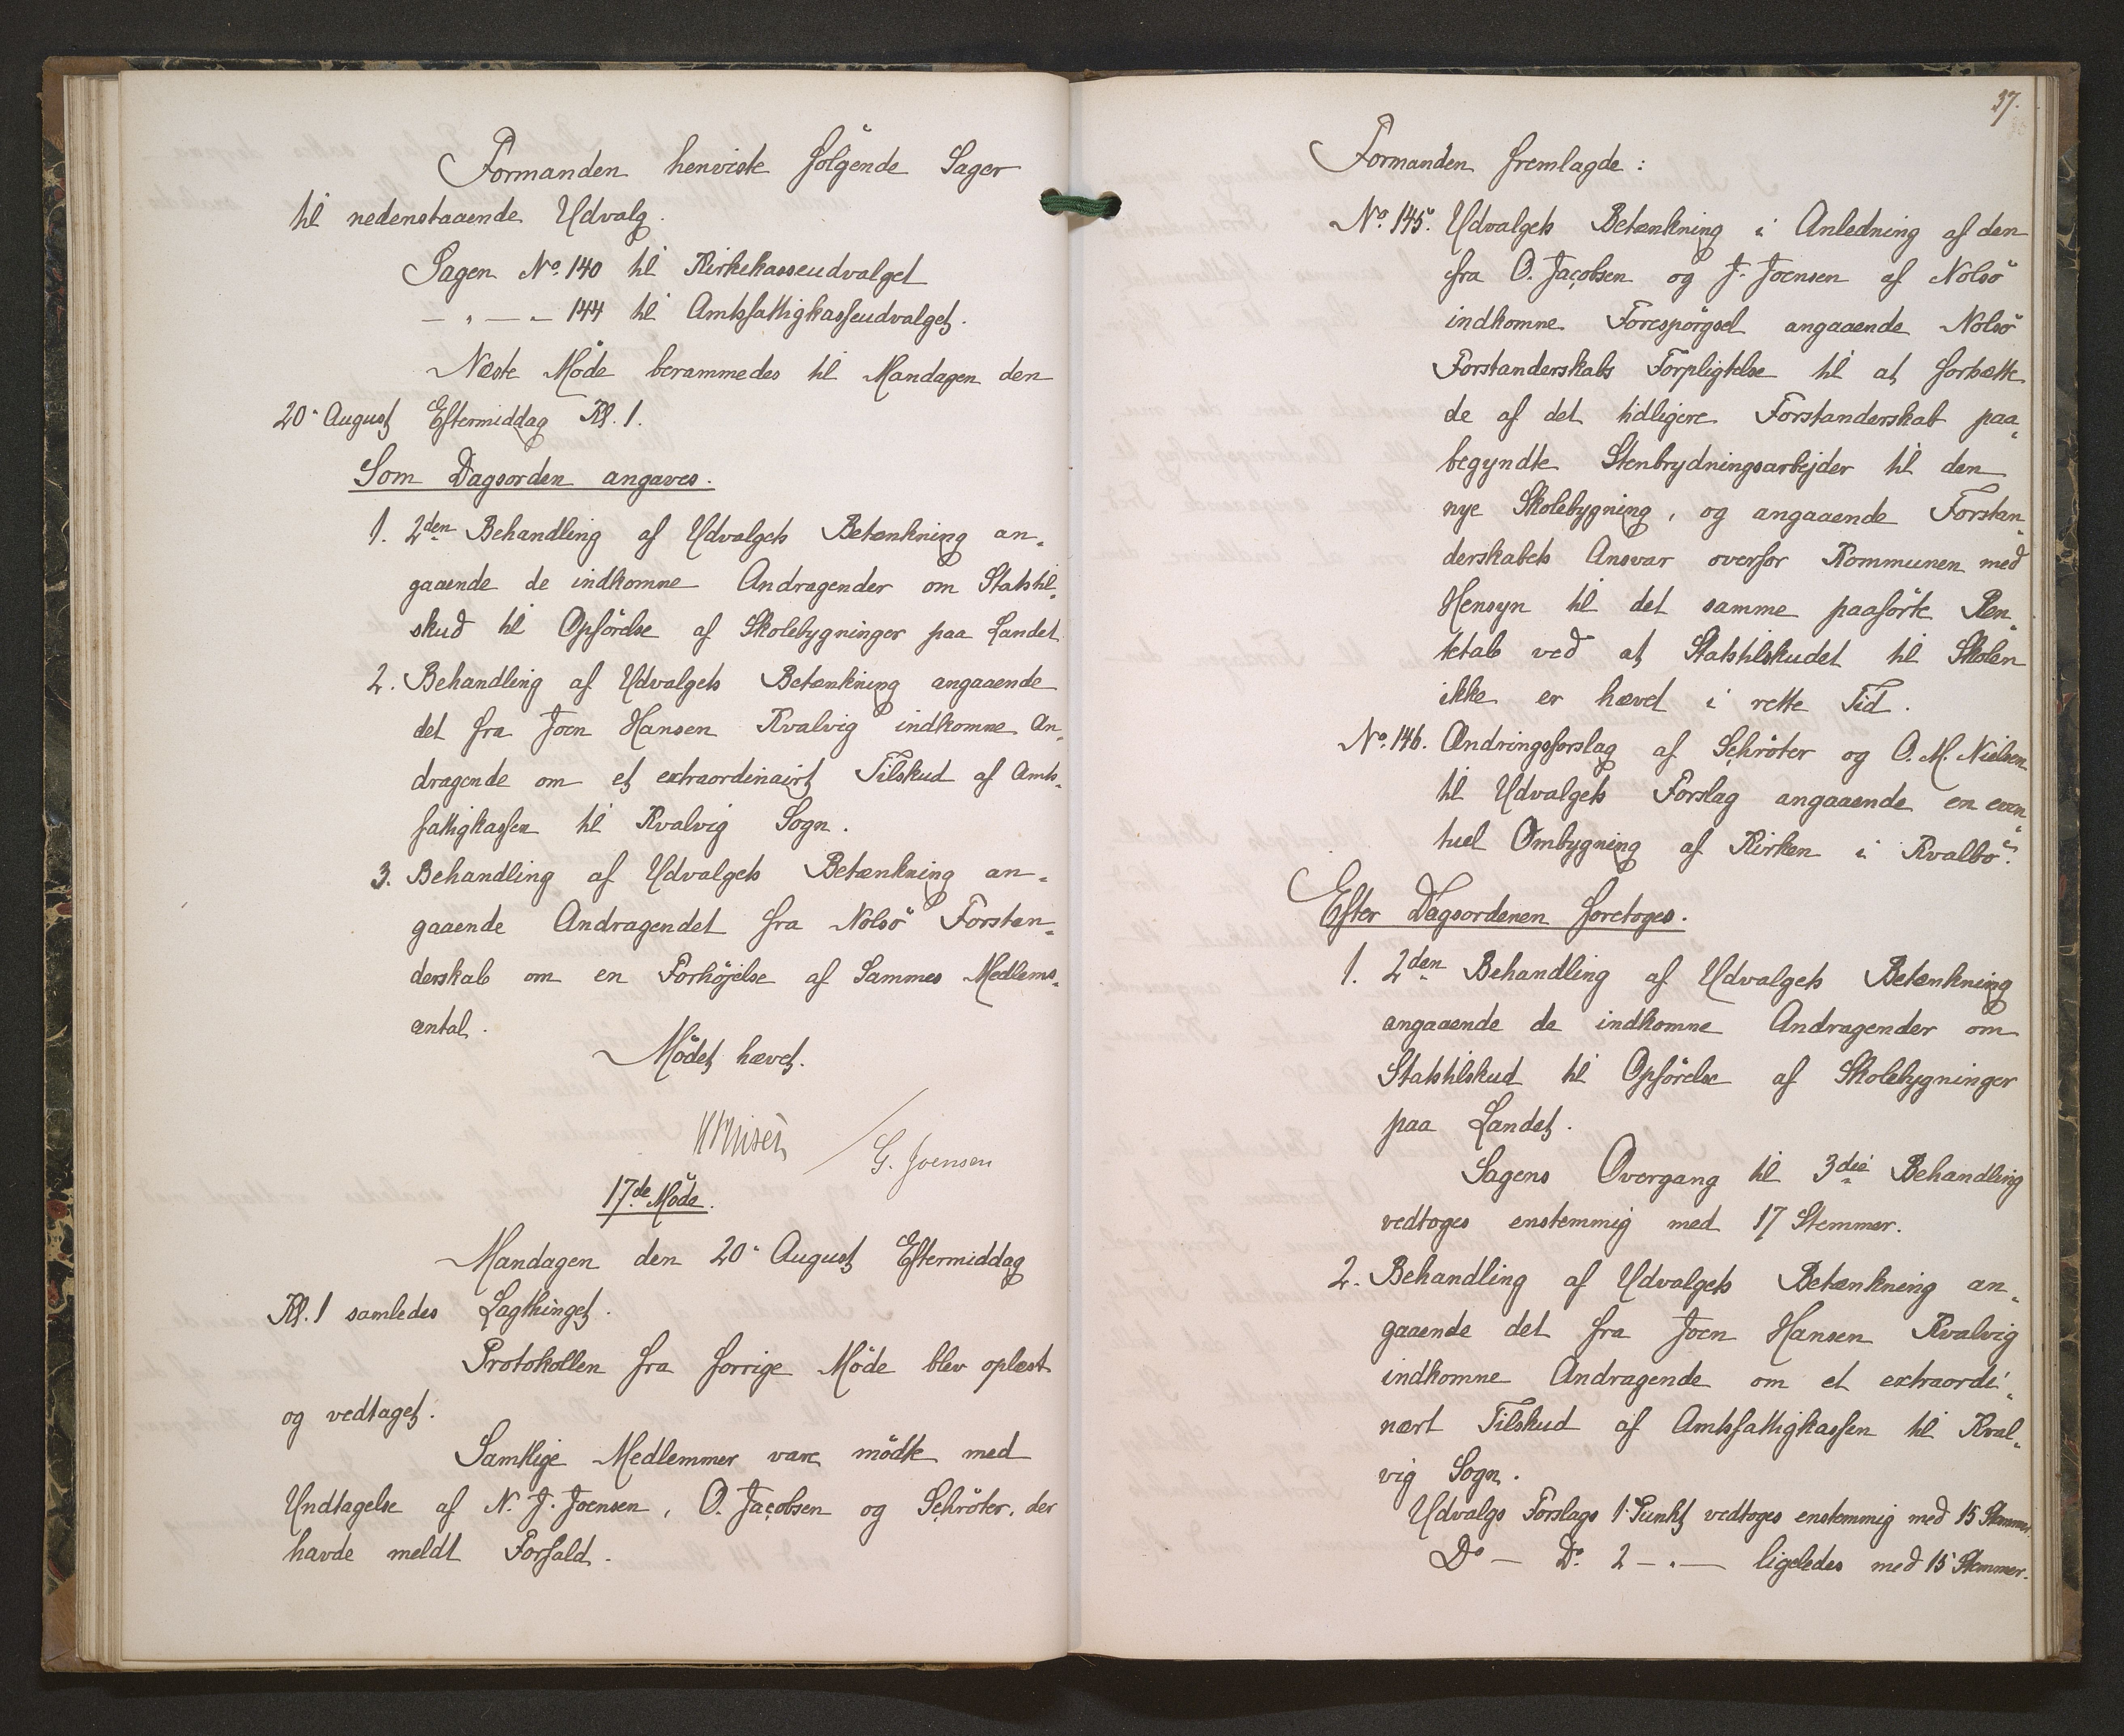 Formanden henviste følgende Sager
til nedenstaaende Udvalg.
Sagen No. 140 til Kirkekasseudvalget
— „ — „ 144 til Amtsfattigkasseudvalget.
Næste Møde berammedes til Mandagen den
20. August Eftermiddag Kl. 1.
Som Dagsorden angaves.
1. 2den Behandling af Udvalgets Betænkning an-
gaaende de indkomne Andragender om Statstil-
skud til Opførelse af Skolebygninger paa Landet
2. Behandling af Udvalgets Betænkning angaaende
det fra Joen Hansen Kvalvig indkomne An-
dragende om et extraordinairt Tilskud af Amts-
fattigkassen til Kvalvig Sogn.
3. Behandling af Udvalgets Betænkning an-
gaaende Andragendet fra Nolsö Forstan-
derskab om en Forhøjelse af Sammes Medlems-
antal.
Mödet hævet.
/ G. Joensen
17de Möde.
Mandagen den 20. August Eftermiddag
Kl. 1 samledes Lagthinget.
Protokollen fra forrige Möde blev oplæst
og vedtaget.
Samtlige Medlemmer vare mödte med
Undtagelse af N. J. Joensen, O. Jacobsen og Schröter, der
havde meldt Forfald.
37.
Formanden fremlagde:
No. 145. Udvalgets Betænkning i Anledning af den
fra O. Jacobsen og J. Joensen af Nolsö
indkomne Forespörgsel angaaende Nolsö
Forstanderskabs Forpligtelse til at fortsætte
de af det tidligere Forstanderskab paa-
begyndte Stenbrydningsarbejder til den
nye Skolebygning, og angaaende Forstan-
derskabets Ansvar overfor Kommunen med
Hensyn til det samme paaförte Ren-
tetab ved at Statstilskudet til Skolen
ikke er hævet i rette Tid.
No. 146. Ændringsforslag af Schröter og O. M. Nielsen
til Udvalgets Forslag angaaende en even-
tuel Ombygning af Kirken i Kvalbö.
Efter Dagsordenen foretoges.
1. 2den Behandling af Udvalgets Betænkning
angaaende de indkomne Andragender om
Statstilskud til Opförelse af Skolebygninger
paa Landet.
Sagens Overgang til 3die Behandling
vedtoges enstemmig med 17 Stemmer.
2. Behandling af Udvalgets Betænkning an-
gaaende det fra Joen Hansen Kvalvig
indkomne Andragende om et extraordi-
nært Tilskud af Amtsfattigkassen til Kval-
vig Sogn.
Udvalgs Forslags 1. Punkt vedtoges enstemmig med 15 Stemmer.
Do — Do. 2 — „ — ligeledes med 15 Stemmer.